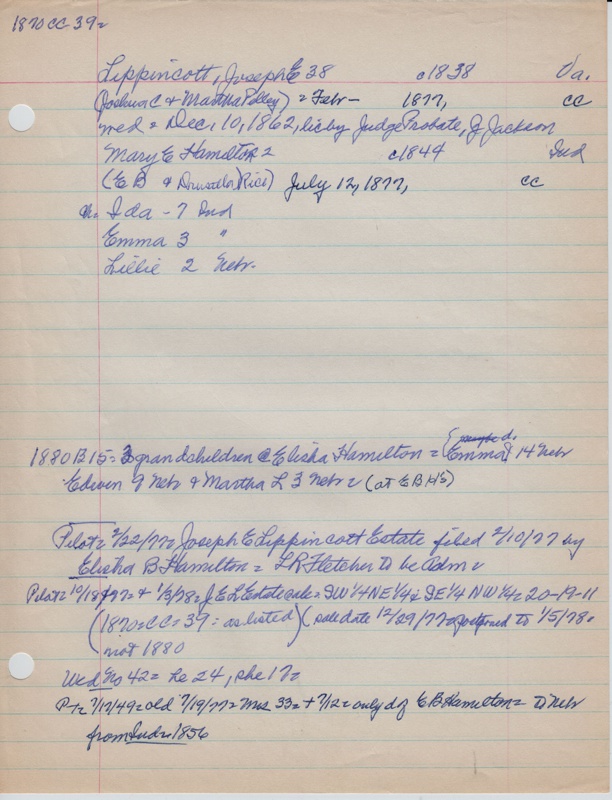 1870 CC 39=
Lippincott, Joseph E 38 c1838 Va.
(Joshua C & Martha Polley) = Febr- 1877, CC
wed = Dec. 10, 1862, lic by Judge Probate, J Jackson
Mary E Hamilton = c1844 Ind
(E B & Drusilla Rice) July 12, 1877, CC
ch: Ida - 7 Ind
Emma 3 "
Lillie 2 Nebr.
1880 B 15 = 3 grandchildren @ Elisha Hamilton = Emma 14 Nebr
Edwin 9 Nebr & Martha L 3 Nebr = (at E B H's)
Pilot = 2/22/77 = Joseph E Lippincott Estate filed 2/10/77 by
Elisha B Hamilton = L R Fletcher to be Adm =
Pilot = 10/18/77 = & 1/3/78 = J E L Estate sale = SW 1/4 NE 1/4 & SE 1/4 NW 1/4 = 20-19-11
(1870 = CC = 39 = as listed) (sale date 12/29/77 = postponed to 1/5/78 =
not 1880
Wed No 42 = he 24, she 17 =
P+ = 7/17/49 = old 7/19/77 = Mrs 33 = + 7/12 = only d of E B Hamilton = to Nebr
from Ind = 1856